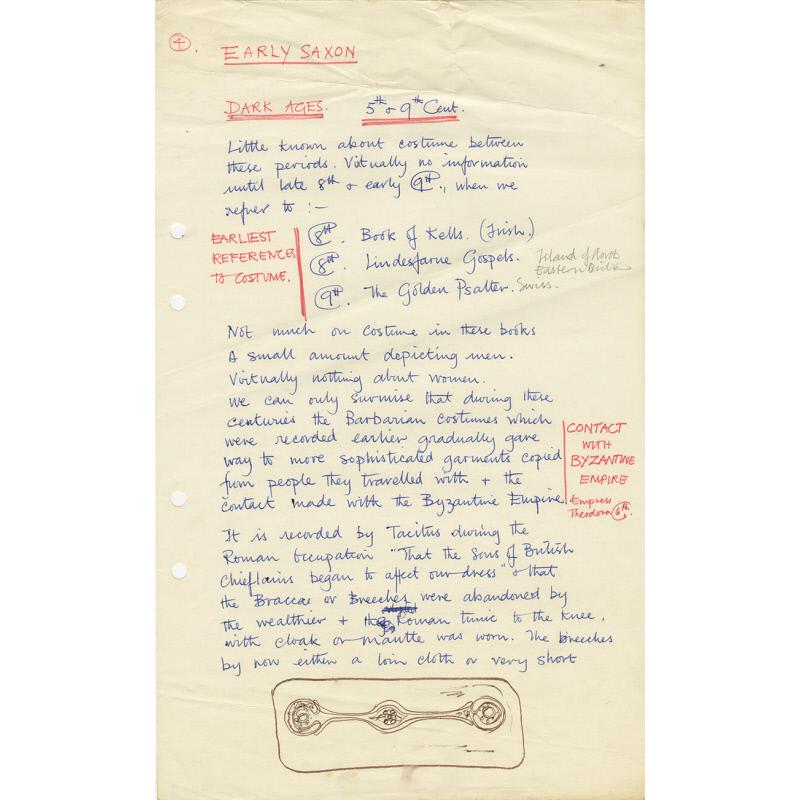 4.
EARLY SAXON
DARK AGES. 5th & 9th Cent.
Little known about costume between
these periods. Virtually no information
until late 8th & early 9th., when we
refer to :-
EARLIEST
REFERENCES
TO COSTUME.
8th. Book of Kells. (Irish.)
8th. Lindesfarne Gospels.
Island of North
Eastern
9th. The Golden Psalter. Swiss.
Not much on costume in these books
A small amount depicting men.
Virtually nothing about women.
We can only surmise that during these
centuries the Barbarian costumes which
were recorded earlier gradually gave
way to more sophisticated garments copied
from people they travelled with + the
contact made with the Byzantine Empire.
CONTACT
WITH
BYZANTINE
EMPIRE
Empress
Theodora 6th.
It is recorded by Tacitus during the
Roman Occupation "That the Sons of British
Chieftains began to affect our dress" & that
the Braccae or Breeches were abandoned by
the wealthier + the Roman tunic to the knee,
with cloak or mantle was worn. The breeches
by now either a loin cloth or very short